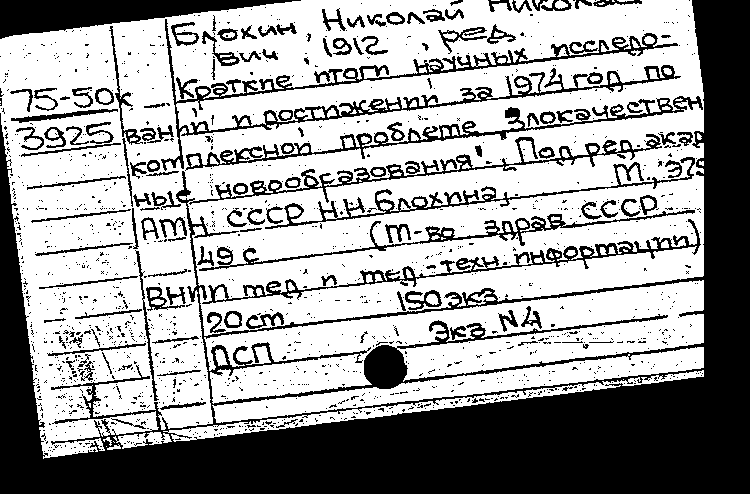 Блохин, Николай Никола
вич, 1912 , ред.
75-50к Краткие итоги научных исследо-
3925 ваний и достижений за 1974 год по
комплексной проблеме "Злокачествен
ные новообразования", Под ред. акад
АМН СССР Н.Н.Блохина, М.,
49 с (М-во здрав. СССР.
ВНИИ мед и мед.-техн. информации)
20 cm. 150 экз.
ДСП. Экз. N4.